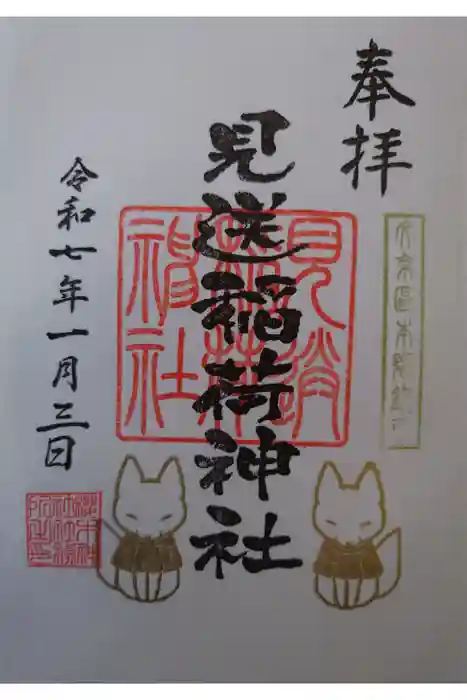 奉拝
見送稲荷神社
令和七年一月三日
見送稲荷神社